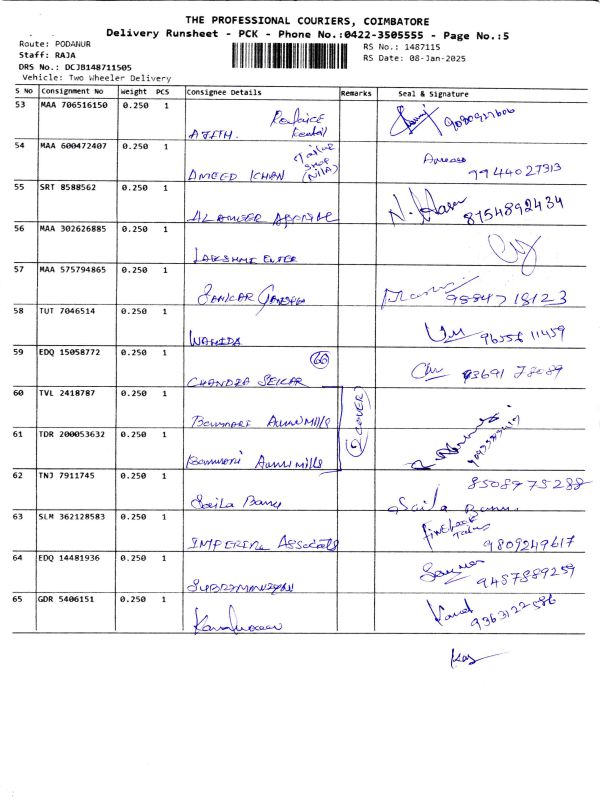 THE PROFESSIONAL COURIERS, COIMBATORE
Delivery Runsheet - PCK - Phone No.:0422-3505555 - Page No.:5
Route: PODANUR
RS No.: 1487115
Staff: RAJA
RS Date: 08-Jan-2025
DRS No.: DCJB148711505
Vehicle: Two Wheeler Delivery
S No Consignment No Weight PCS Consignee Details Remarks Seal & Signature
53 MAA 706516150 0.250 1
AJITH.
9080927606
54 MAA 600472407 0.250 1
Tailor
Shop
AMEED KHAN (NILA)
9944027313
55 SRT 8588562 0.250 1
8754892434
56 MAA 302626885 0.250 1
LAKSHMI ENTER
57 MAA 575794865 0.250 1
SANKAR GANESH
9884718123
58 TUT 7046514 0.250 1
WAHIDA
9655811459
59 EDQ 15058772 0.250 1
66
CHANDRA SEKAR
93691 78089
60 TVL 2418787 0.250 1
Bannari Amman Mills
(2 COVER)
61 TDR 200053632 0.250 1
Bannari Amman Mills
62 TNJ 7911745 0.250 1
8508975288
Saila Banu
Saila Banu
63 SLM 362128583 0.250 1
IMPERIAL Associates
9809249617
64 EDQ 14481936 0.250 1
SUBRAMANIYAN
9487889259
65 GDR 5406151 0.250 1
9363122586